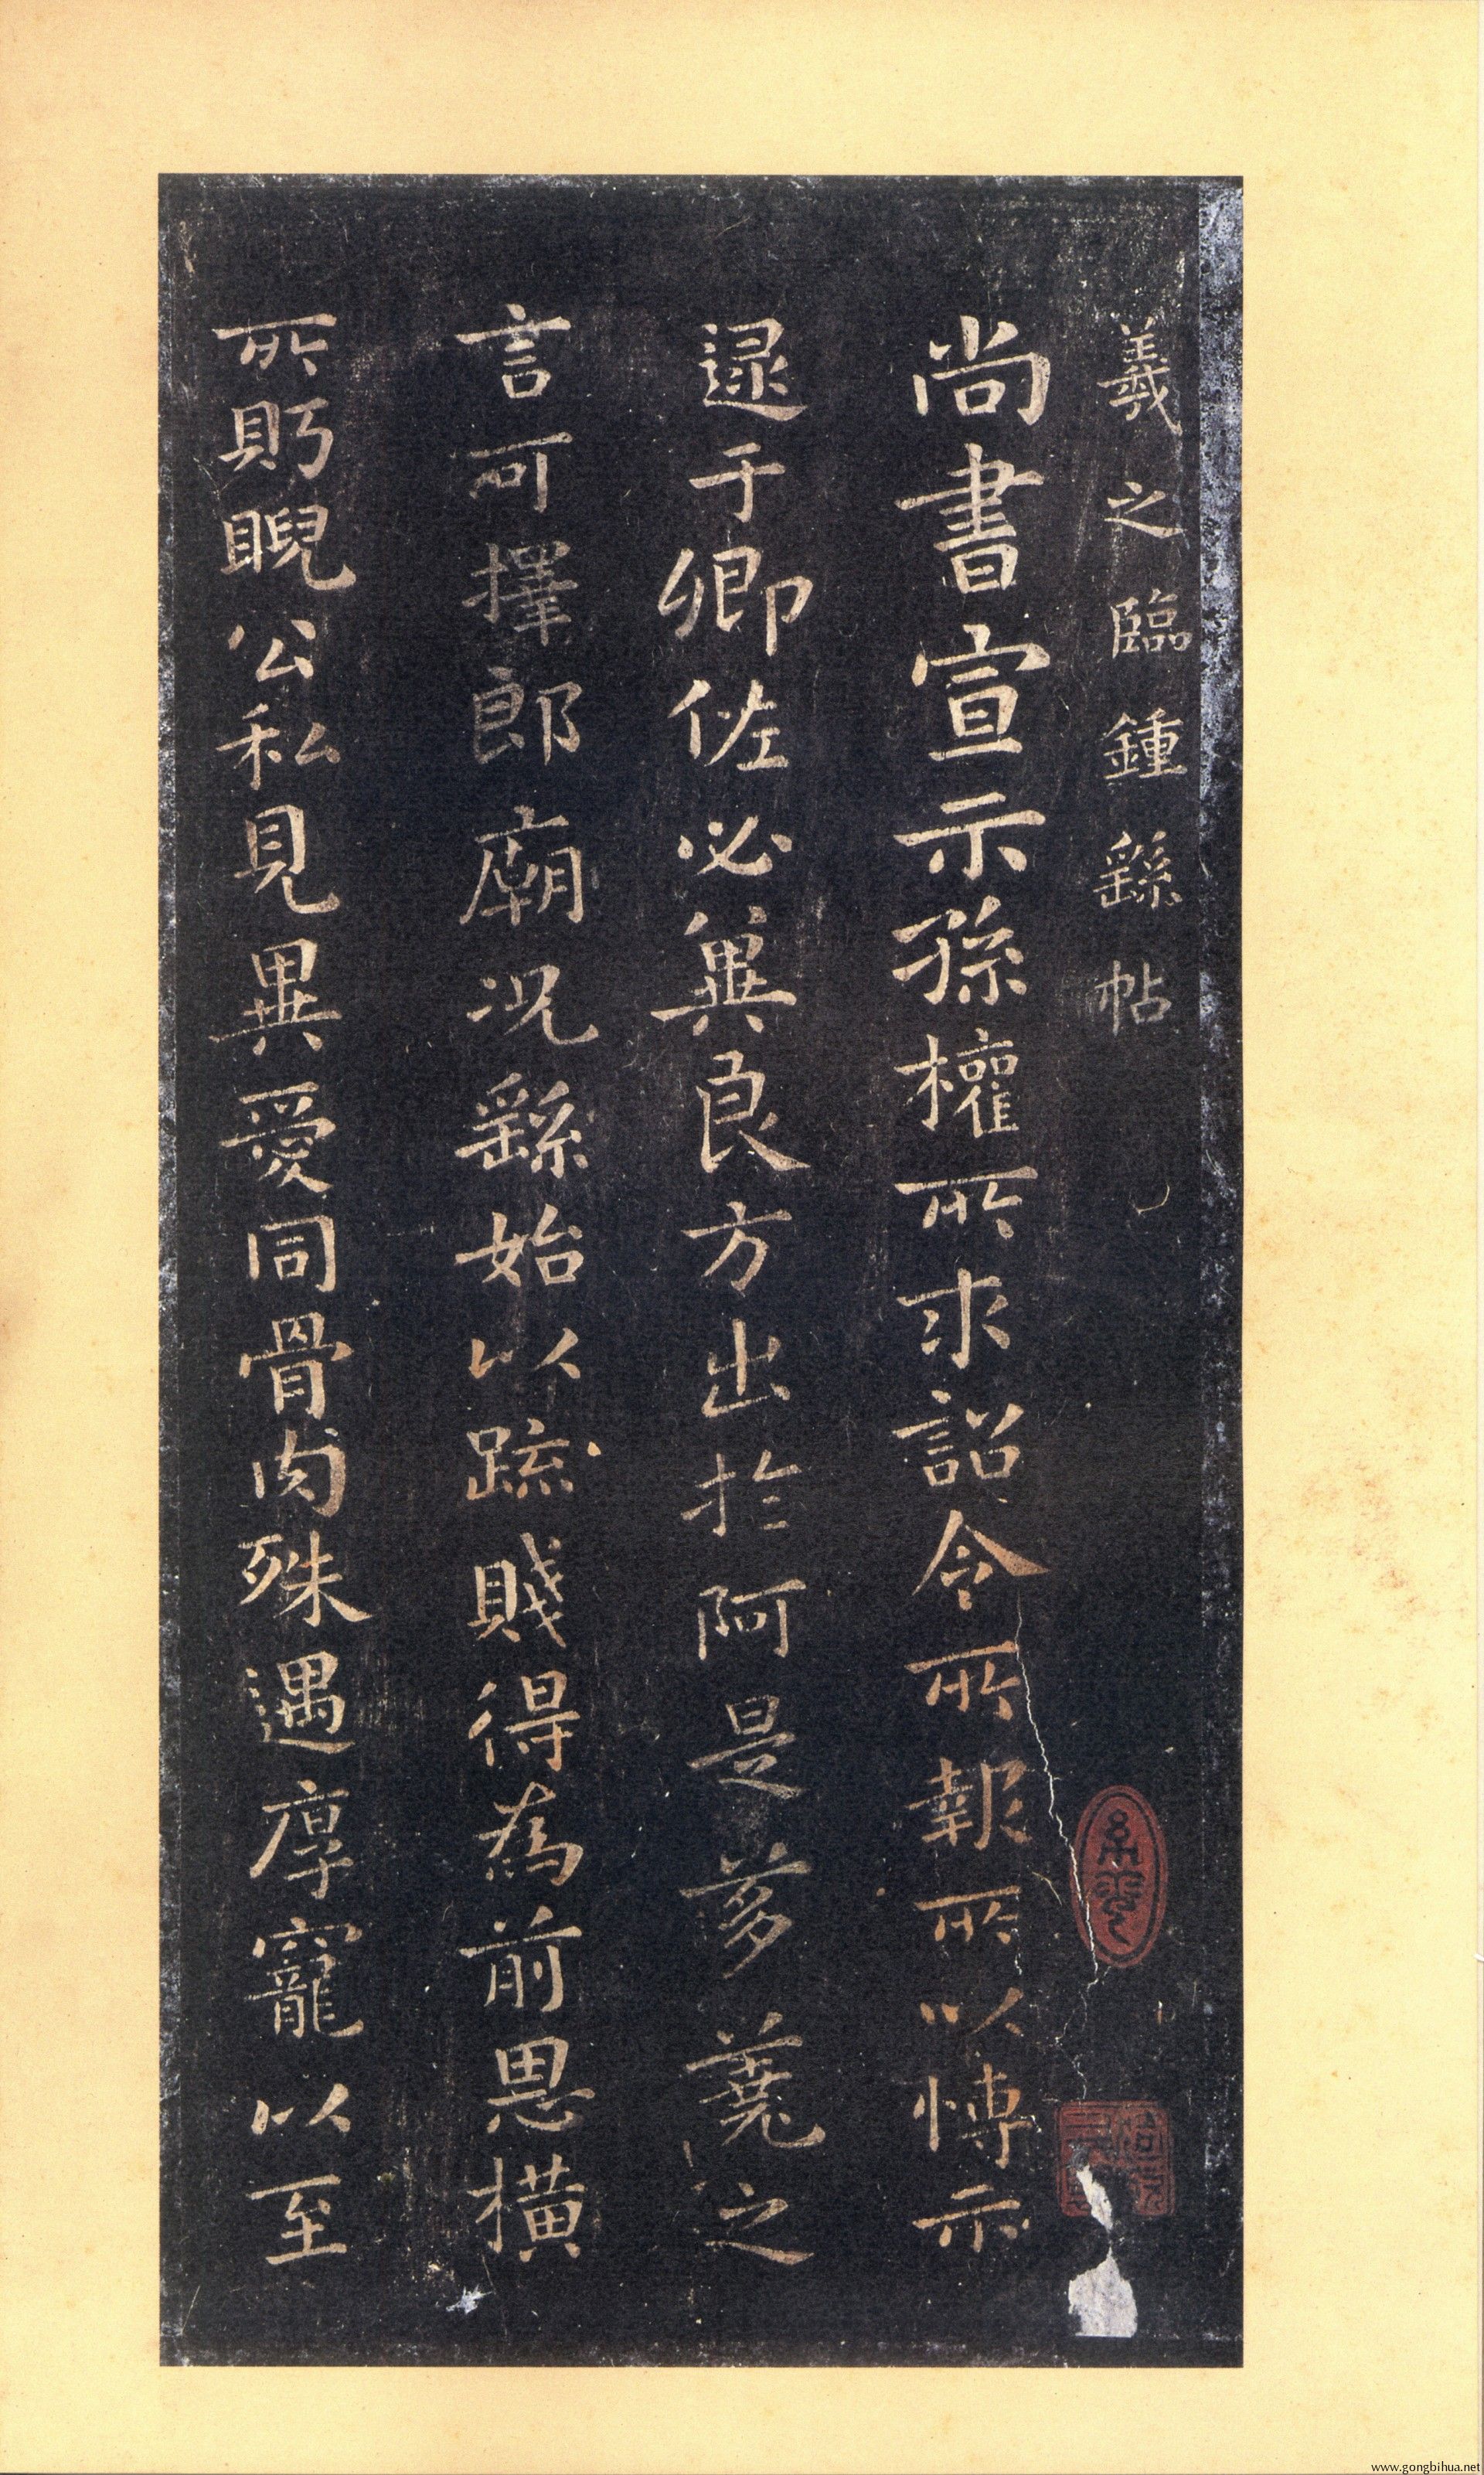 羲之臨鍾繇帖
尚書宣示孫權所求詔令所報所以博示
逮于卿佐必冀良方出於阿是芻蕘之
言可擇郎廟況繇始以疏賤得為前恩橫
所盱睨公私見異愛同骨肉殊遇厚寵以至
www.gongbihua.net